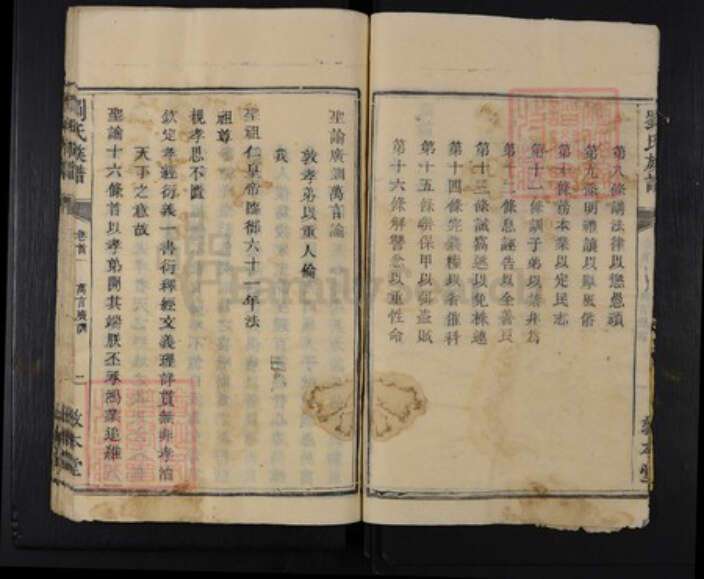 劉氏族譜
第八條講法律以儆愚頑
第九條明禮讓以厚風俗
第十條務本業以定民志
第十一條訓子弟以禁非為
第十二條息誣告以全善良
第十三條誡窩逃以免株連
第十四條完錢糧以省催科
第十五條聯保甲以弭盜賊
第十六條解讐忿以重性命
聖諭廣訓萬言諭
敦孝弟以重人倫
我
聖祖仁皇帝臨御六十一年法
祖尊
親孝思不匱
欽定孝經衍義一書衍釋經文義理詳貫無非孝治
天下之意故
聖諭十六條首以孝弟開其端朕丕承鴻業追維
劉氏族譜
卷首
萬言廣訓
二
敦本堂
FamilySearch